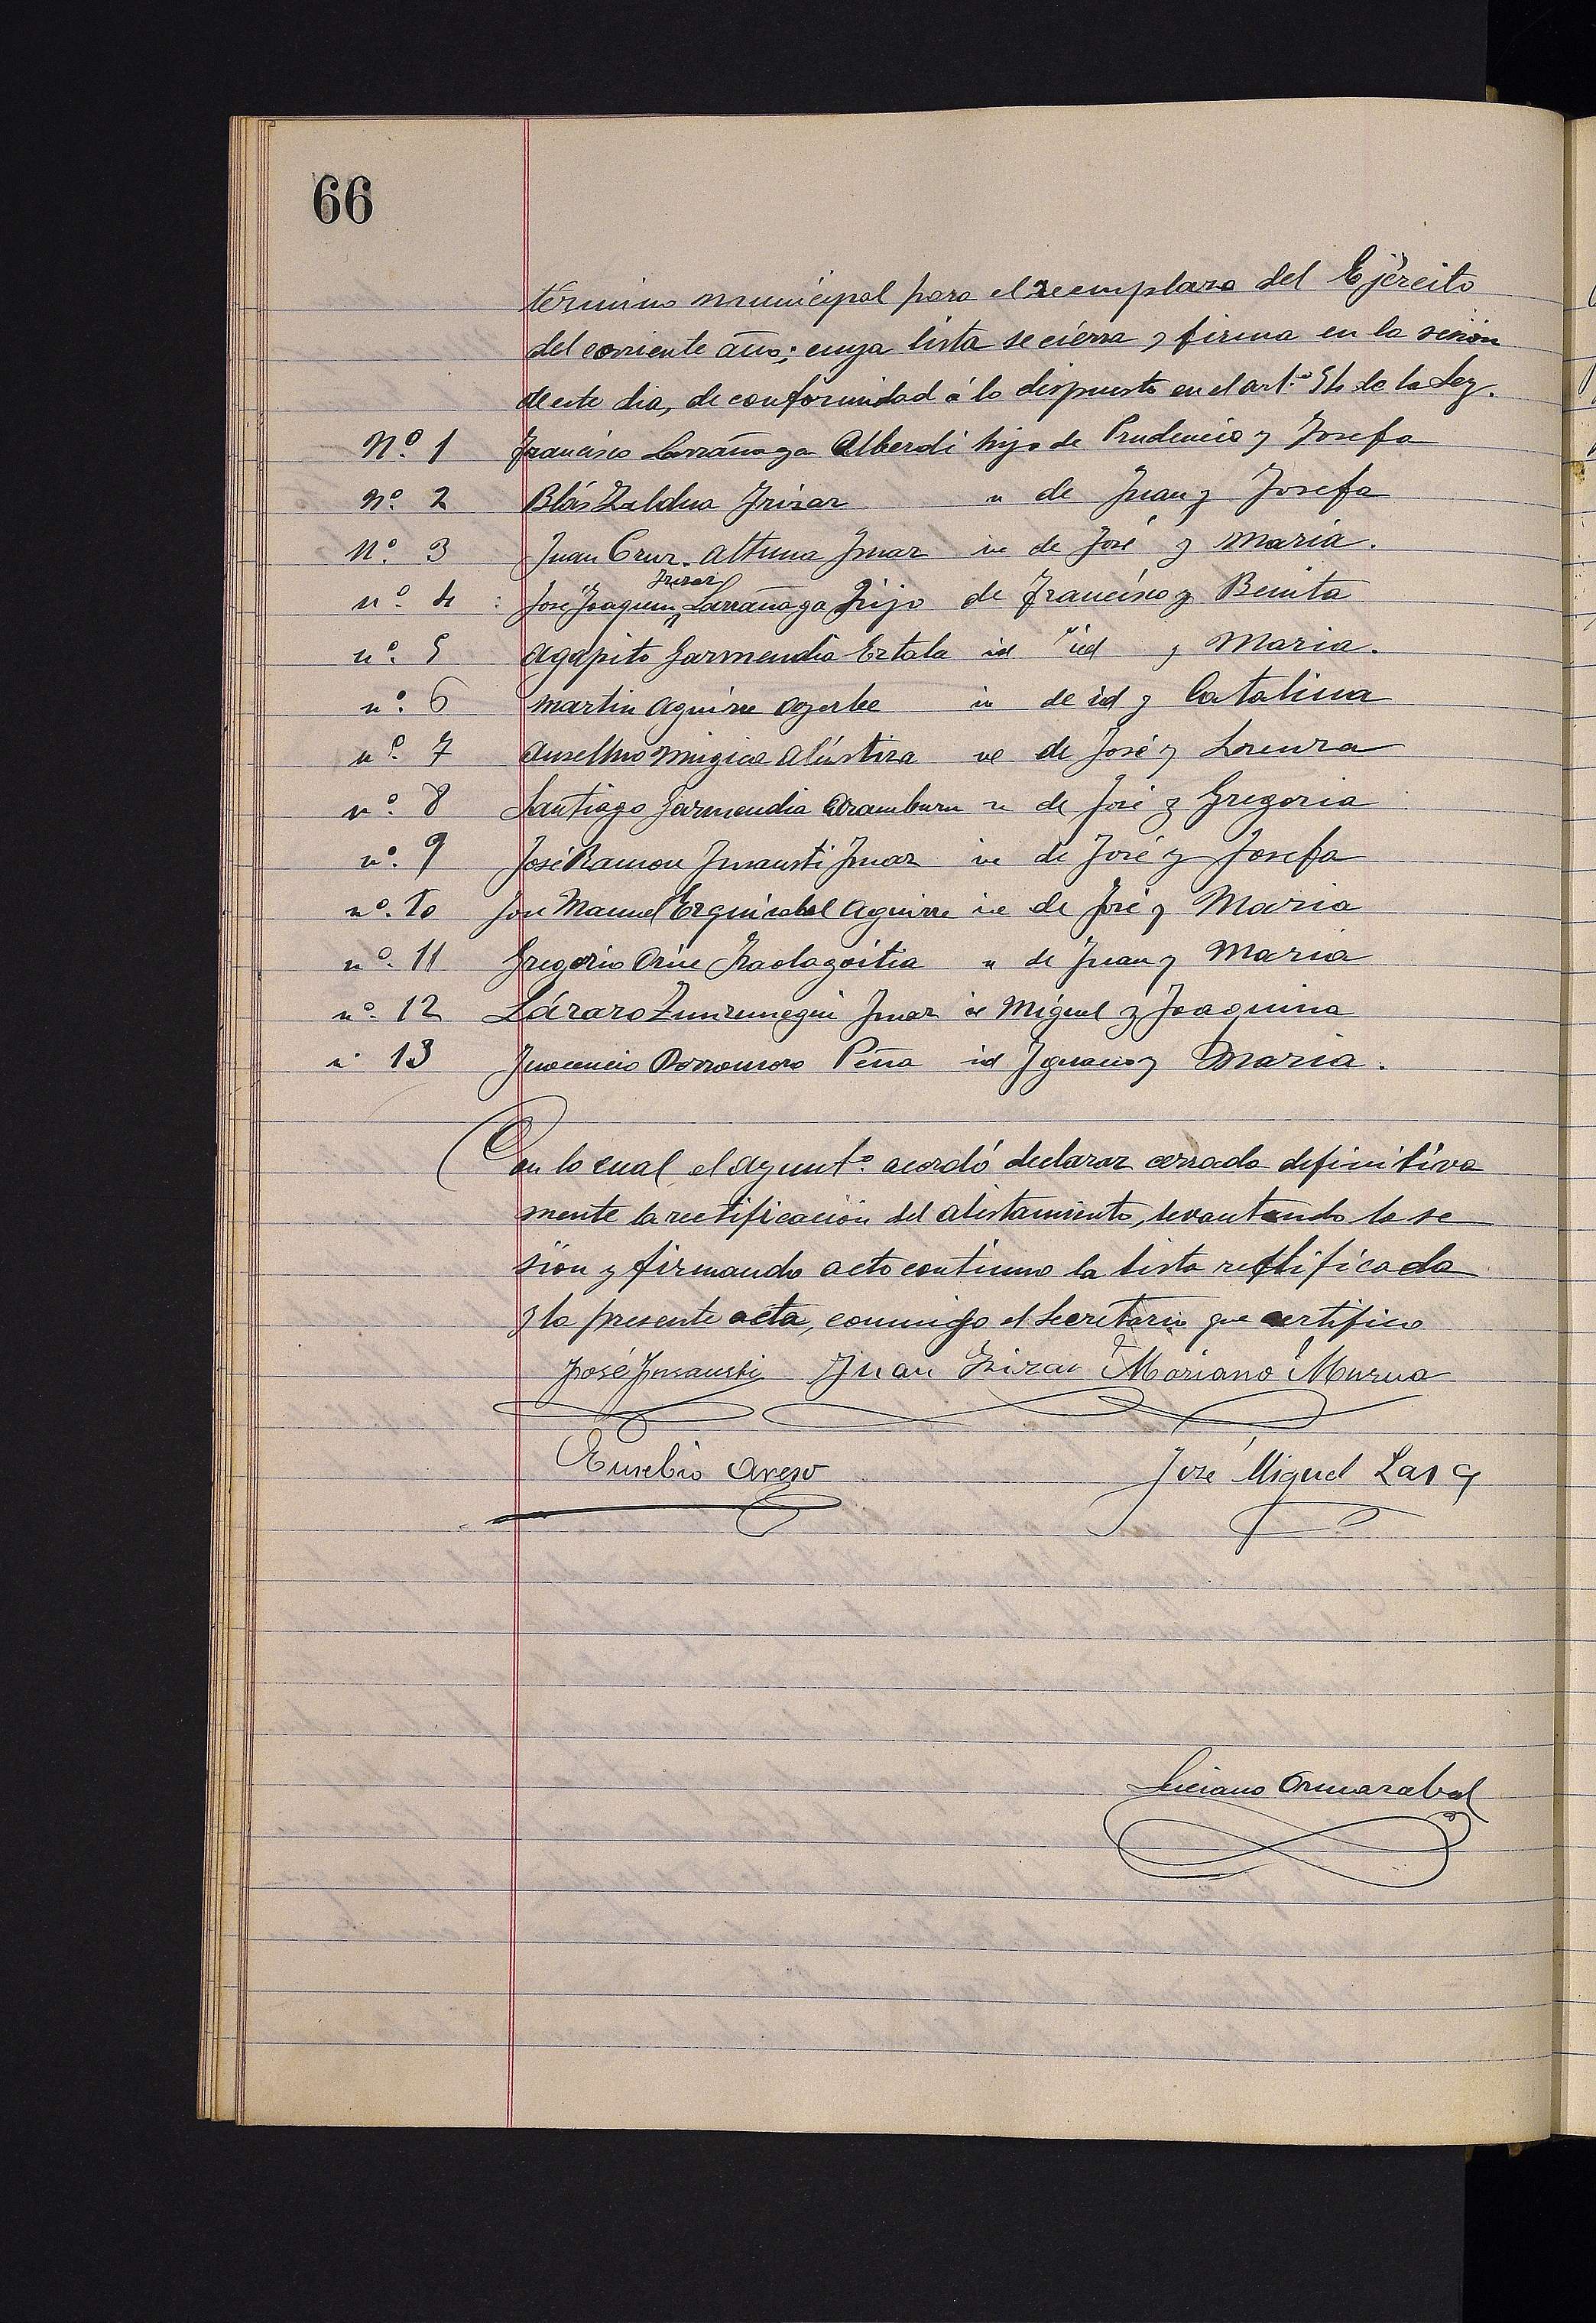 66
término municipal para el reemplazo del Ejército
del corriente año; cuya lista se cierra y firma en la sesion
de este dia, de conformidad á lo dispuesto en el art.º 54 de la Ley.
Nº. 1 Francisco Larrañaga Alberdi hijo de Prudencio y Josefa
Nº. 2 Blás Zaldua Irizar de Juan y Josefa
Nº. 3 Juan Cruz Altuna de José y Maria.
Irizar
nº. 4 José Joaquin Larrañaga hijo de Francisco y Benita
nº. 5 Agapito Garmendia id id y Maria.
nº. 6 Martin Aguirre de id y Catalina
nº. 7 Anselmo Mugica Alústiza de José y Lorenza
nº. 8 Santiago Garmendia Aramburu de José y Gregoria
nº. 9 José Ramon Insausti de José y Josefa
nº. 10 José Manuel Ezquisabel Aguirre de José y Maria
nº. 11 Gregorio de Juan y Maria
nº. 12 Lázaro Miguel y Joaquina
n 13 Inocencio Dorronsoro Peña id Ignacio y Maria.
Con lo cual el Ayuntº. acordó declarar cerrada definitiva
mente la rectificación del alistamiento, levantando la se
sion y firmando acto continuo la lista rectificada
y la presente acta, conmigo el Secretario que certifico
José Insausti Juan Irizar Mariano Murua
Eusebio Areso José Miguel Lasa
Luciano Ormazabal